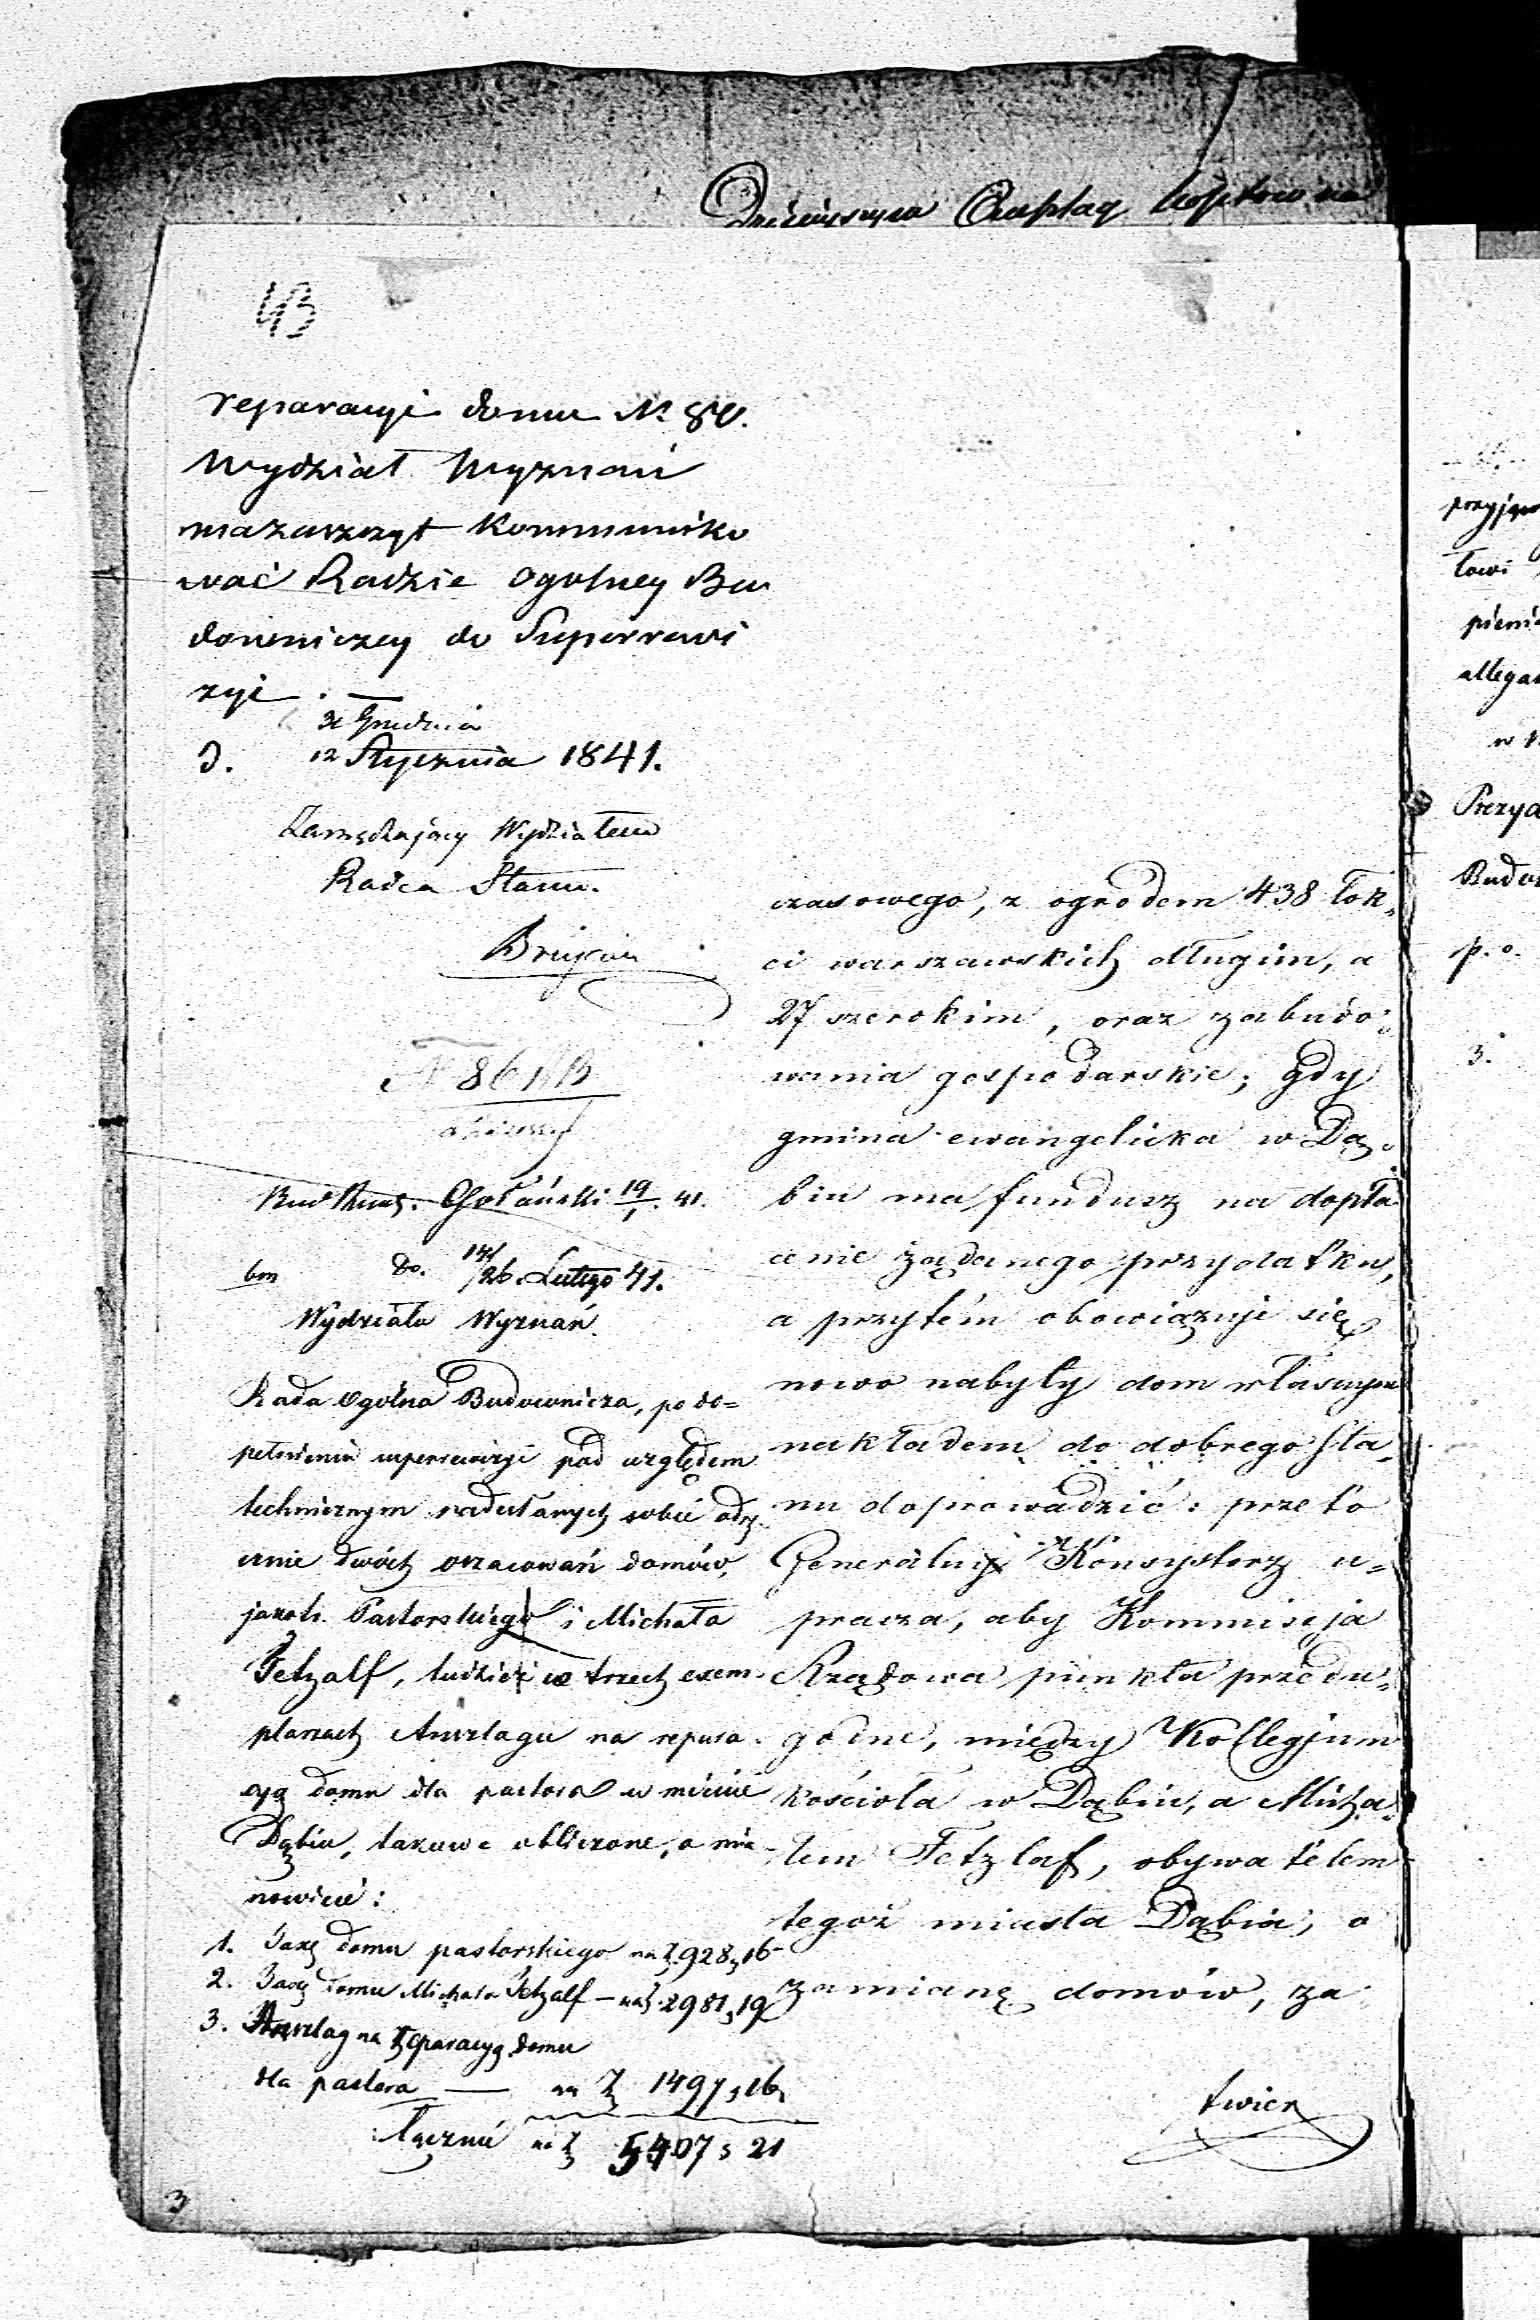 43
reparacyi domu Nr 80.
Wydział Wyznań
ma zaszczyt Kommuniko
wać Radzie Ogolney Bu
downiczey do Superrewi
zyi. —
31 Grudnia
d. 12 Stycznia 1841.
Zarządzający Wydziałem
Radca Stanu.
N 86
19/1. 41.
do. 14/26 Lutego 41.
Wydziału Wyznań.
Rada Ogólna Budownicza, po do=
pełnieniu superrewizyi pod względem
technicznym nadesłanych sobie odrę
cznie dwóch oszacowań domów,
jakoto: Pastorskiego i Michała
Fetzalf, tudzież w trzech exem
plarzach Anszlagu na repara
cyą domu dla pastora w mieście
Dąbiu, takowe obliczone, a mia
nowicie:
1. Taxę domu pastorskiego na Zł. 928, 16 –
2. Taxę domu Michała Fetzalf — na Zł. 2981, 19
3. Anszlag na Reparacyą domu
dla pastora — na Zł 1497, 16,
Łącznie na Zł 5407, 21
3
czasowego, z ogrodem 438 łok=
ci warszawskich długim, a
27 szerokim, oraz zabudo=
wania gospodarskie; gdy
gmina ewangelicka w Dą=
biu ma fundusz na dopła
cenie żądanego przydatku,
a przytém obowiązuje się
nowo nabyty dom własnym
nakładem do dobrego sta=
nu doprowadzić: przeto
Generalny Konsystorz u=
prasza, aby Kommissja
Rządowa punkta przedu=
godne, między Kollegjum
kościoła w Dąbiu, a Micha=
łem Fetzlaf, obywatelem
tegoż miasta Dąbia, o
zamianę domów, za
twier
przyjąw
łowi
pienię
allega
w
Prezyd
Budow
p. o.
3.